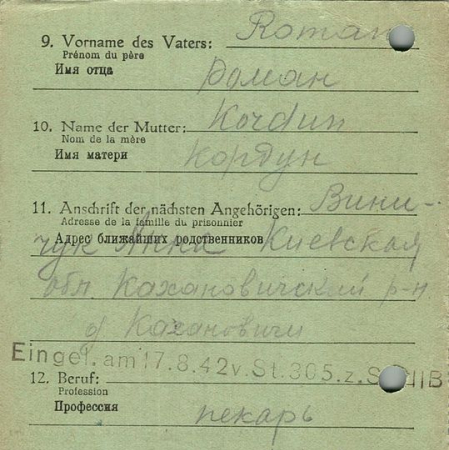 9. Vorname des Vaters: Roman
Prénom du père
Имя отца Роман
10. Name der Mutter: Kordun
Nom de la mère
Имя матери Кордун
11. Anschrift der nächsten Angehörigen: Вини-
Adresse de la famille du prisonnier
чук Анна Киевская
Адрес ближайших родственников
обл. Кахановичский р-н
д Кахановичи
Eingel. am 17.8.42 v. St. 305. z. II B
12. Beruf:
Profession
Профессия пекарь